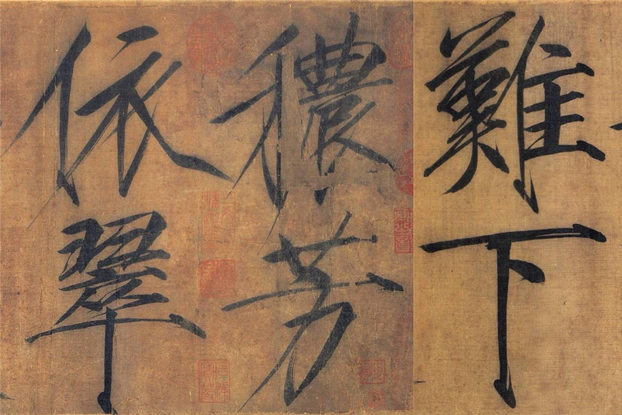 難下
穠芳
依翠